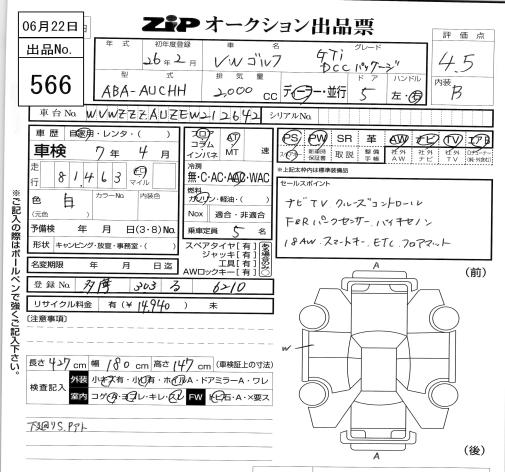 06月22日
出品No.
566
ZiP オークション出品票
評価点
4.5
内装
B
年式 初年度登録 車名 グレード
26年2月 VWゴルフ GTi DCCパッケージ
型式 排気量 ドア ハンドル
ABA-AUCHH 2,000 CC ディーラー・並行 5 左・右
車台No. WVWZZZAUZEW212642 シリアルNo.
車歴 自家用・レンタ・( )
車検 7年4月
走行 81,463 マイル
色 白 カラーNo.
(元色 )
予備検 年 月 日(3・8)No.
形状 キャンピング・放室・事務室・( )
名変期限 年 月 日迄
フロア コラム インパネ
AT MT 速
冷房
無・C・AC・AAC・WAC
燃料
ガソリン・軽油・( )
Nox 適合・非適合
乗車定員 5 名
スペアタイヤ [有]
ジャッキ [有]
工具 [有]
AWロックキー [有]
PS PW SR 革 AW ナビ TV エアB
取説 整備手帳 社外AW 社外ナビ 社外TV
※上記太枠内は標準装備品
セールスポイント
ナビTV クルーズコントロール
F&Rパークセンサー バイキセノン
18AW スマートキー ETC フロアマット
登録No. 多摩 303 る 6210
リサイクル料金 有(¥ 14,940 ) 未
[注意事項]
長さ 427cm 幅 180cm 高さ 147cm (車検証上の寸法)
検査記入 外装 小キズ有・小凹有・ホイルA・ドアミラーA・ワレ
室内 コゲ・ヨゴレ・キレ・スレ FW トビ石・A・×要ス
A
(前)
W
A
(後)
※ご記入の際はボールペンで強くご記入下さい。